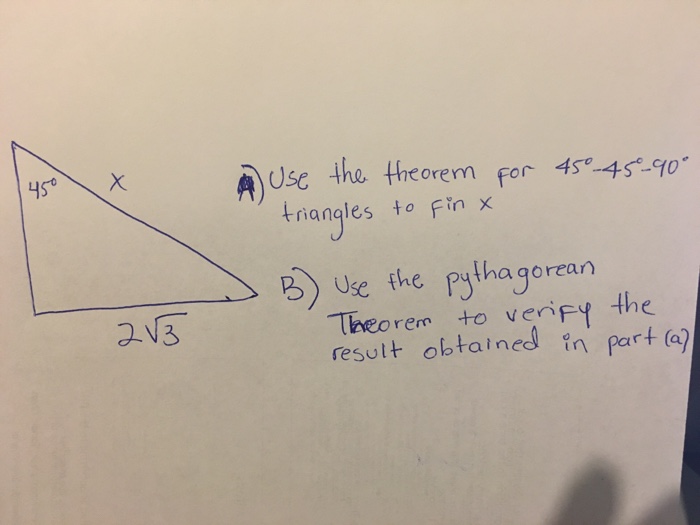 45°
x
2√3
A) Use the theorem for 45°-45°-90°
triangles to fin x
B) Use the pythagorean
Theorem to verify the
result obtained in part (a)